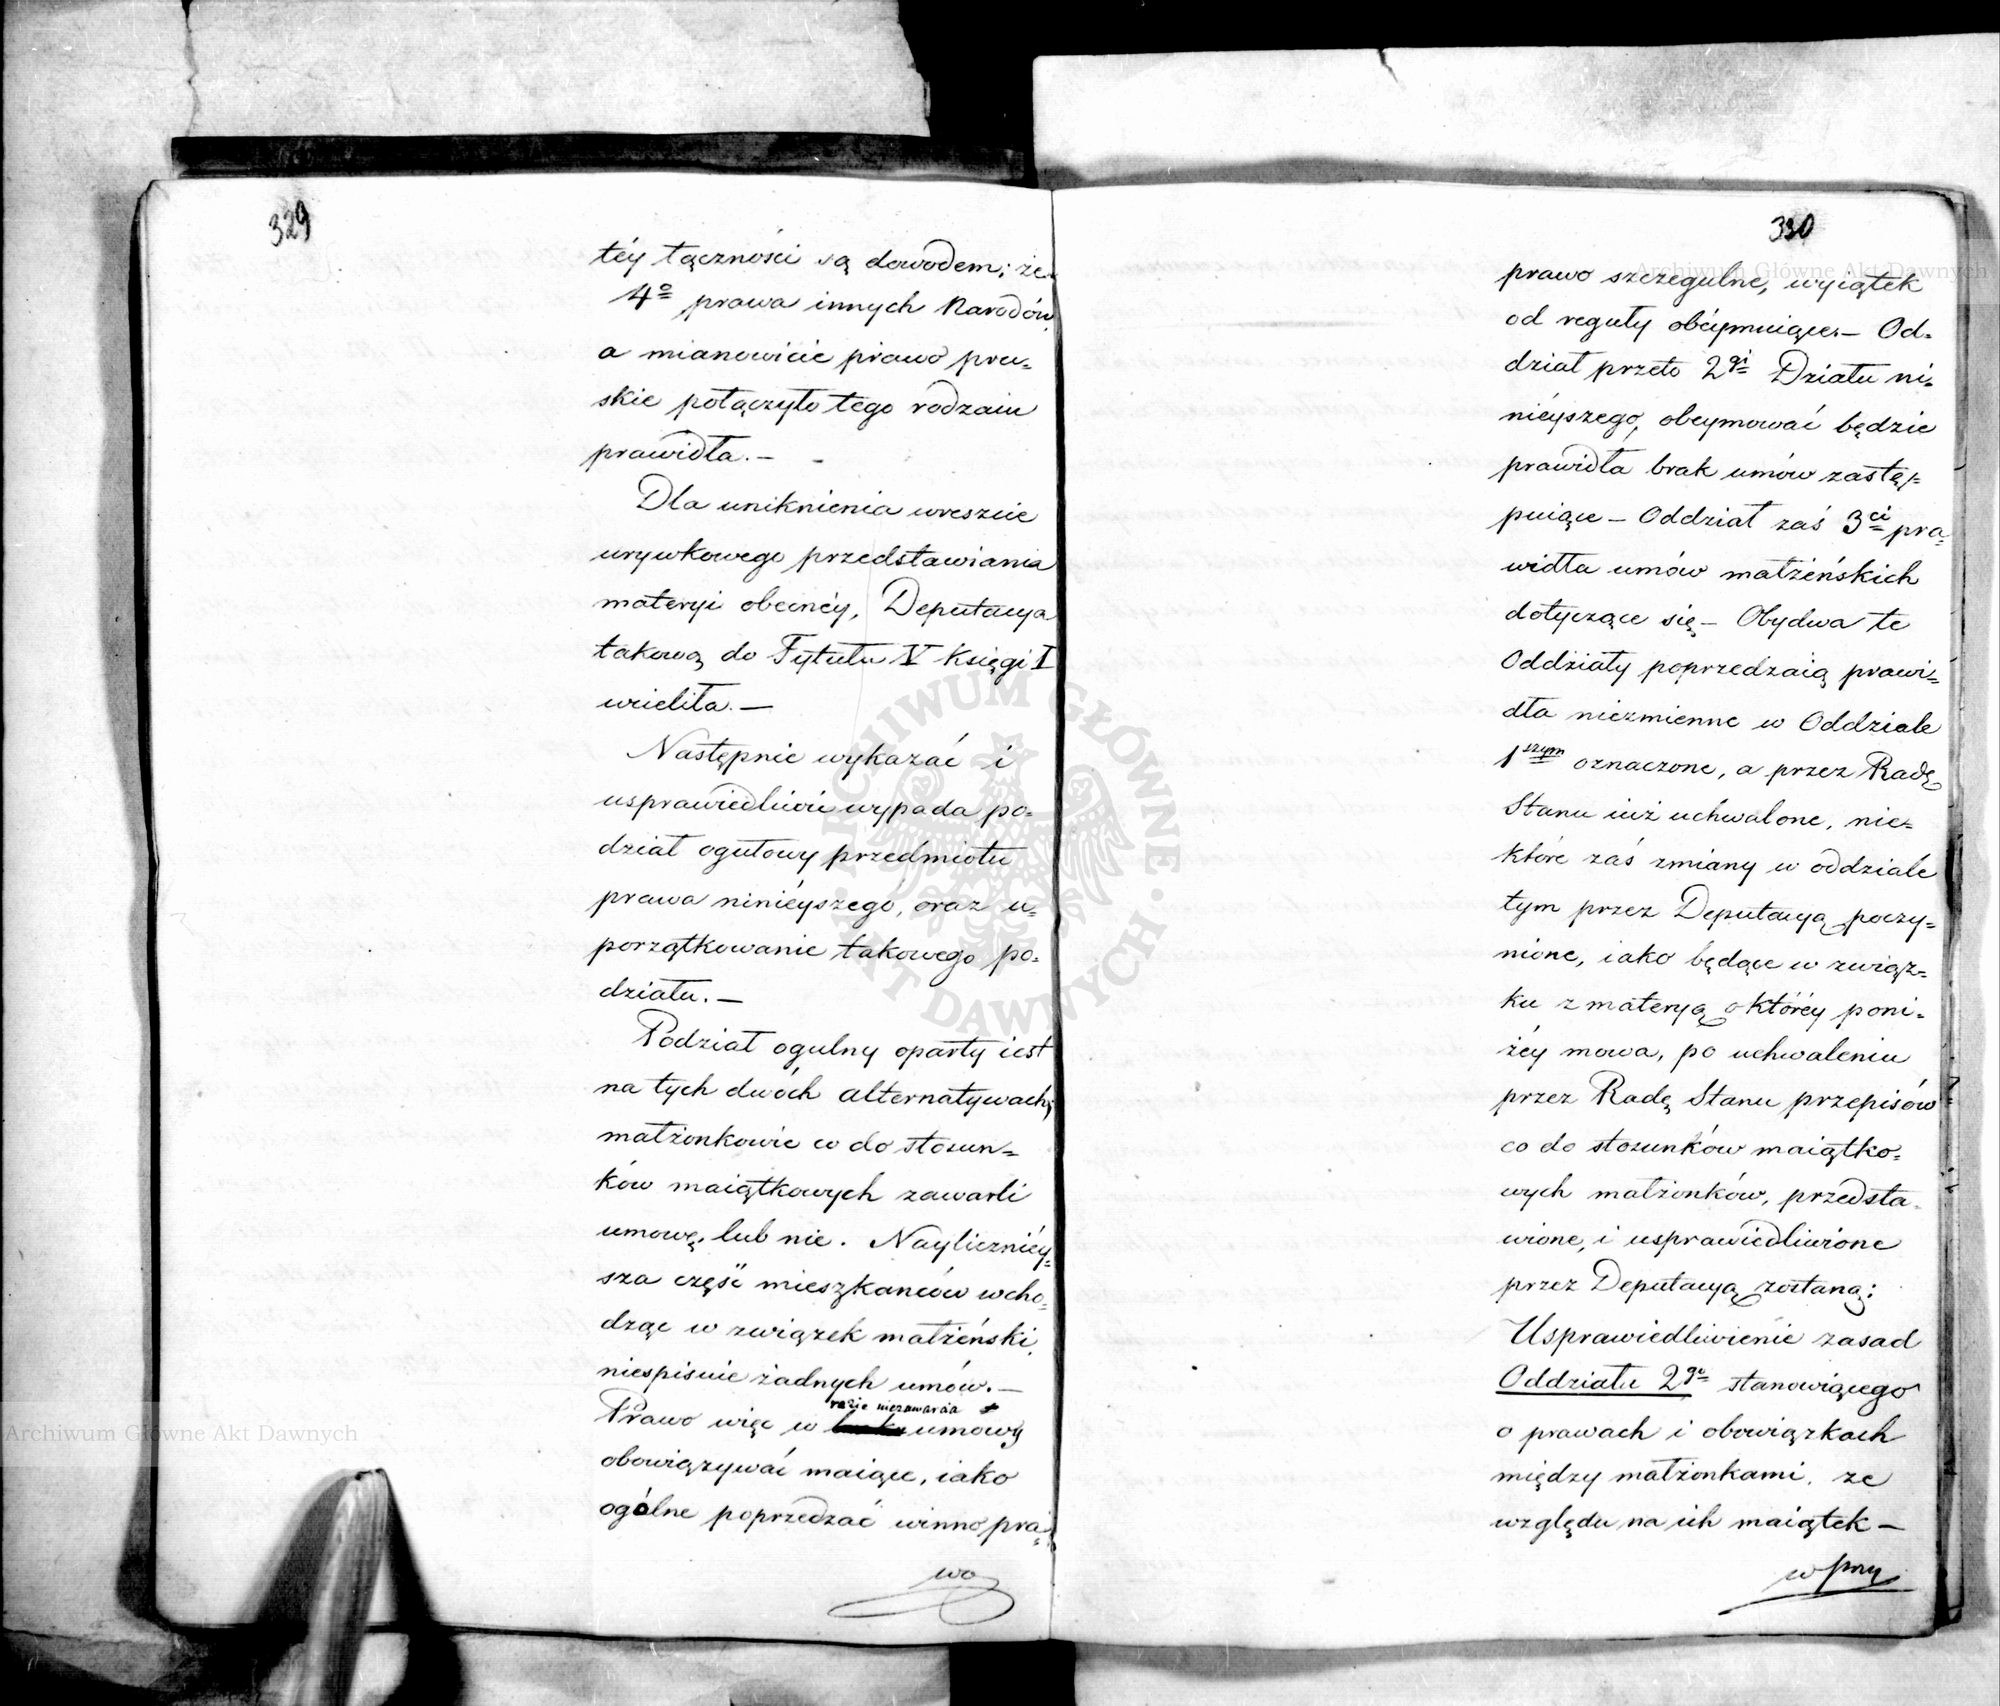 329
téy łączności są dowodem; że
4o prawa innych Narodów,
a mianowicie prawo pru=
skie połączyło tego rodzaiu
prawidła.—
Dla uniknienia wreszcie
urywkowego przedstawiania
materyi obecnéy, Deputacya
takową do Tytułu V Księgi I
wcieliła.—
Następnie wykazać i
usprawiedliwić wypada po=
dział ogułowy przedmiotu
prawa ninieyszego, oraz u=
porządkowanie takowego po=
działu.—
Podział ogulny oparty iest
na tych dwóch alternatywach;
małżonkowie co do stosun=
ków maiątkowych zawarli
umowę, lub nie. Naylicznićy=
sza część mieszkańców wcho=
dząc w związek małżeński,
niespisuie żadnych umów.—
razie niezawarcia
Prawo więc w umowy
obowiązywać maiące, iako
ogólne poprzedzać winno pra=
wo
330
prawo szczegulne, wyiątek
od reguły obéymuiące.— Od=
dział przeto 2gi Działu ni=
niéyszego, obeymować będzie
prawidła brak umów zastę=
puiące — Oddział zaś 3ci pra=
widła umów małżeńskich
dotyczące się — Obydwa te
Oddziały poprzedzaią prawi=
dła niezmienne w Oddziale
1szym oznaczone, a przez Radę
Stanu iuż uchwalone, nie=
które zaś zmiany w oddziale
tym przez Deputacyą poczy=
nione, iako będące w związ=
ku z materyą o któréy poni=
żéy mowa, po uchwaleniu
przez Radę Stanu przepisów
co do stosunków maiątko=
wych małżonków, przedsta=
wione, i usprawiedliwione
przez Deputacyą zostaną:
Usprawiedliwienie zasad
Oddziału 2go stanowiącego
o prawach i obowiązkach
między małżonkami, ze
względu na ich maiątek —
w przy
Archiwum Główne Akt Dawnych
Archiwum Główne Akt Dawnych
ARCHIWUM GŁÓWNE · AKT DAWNYCH ·